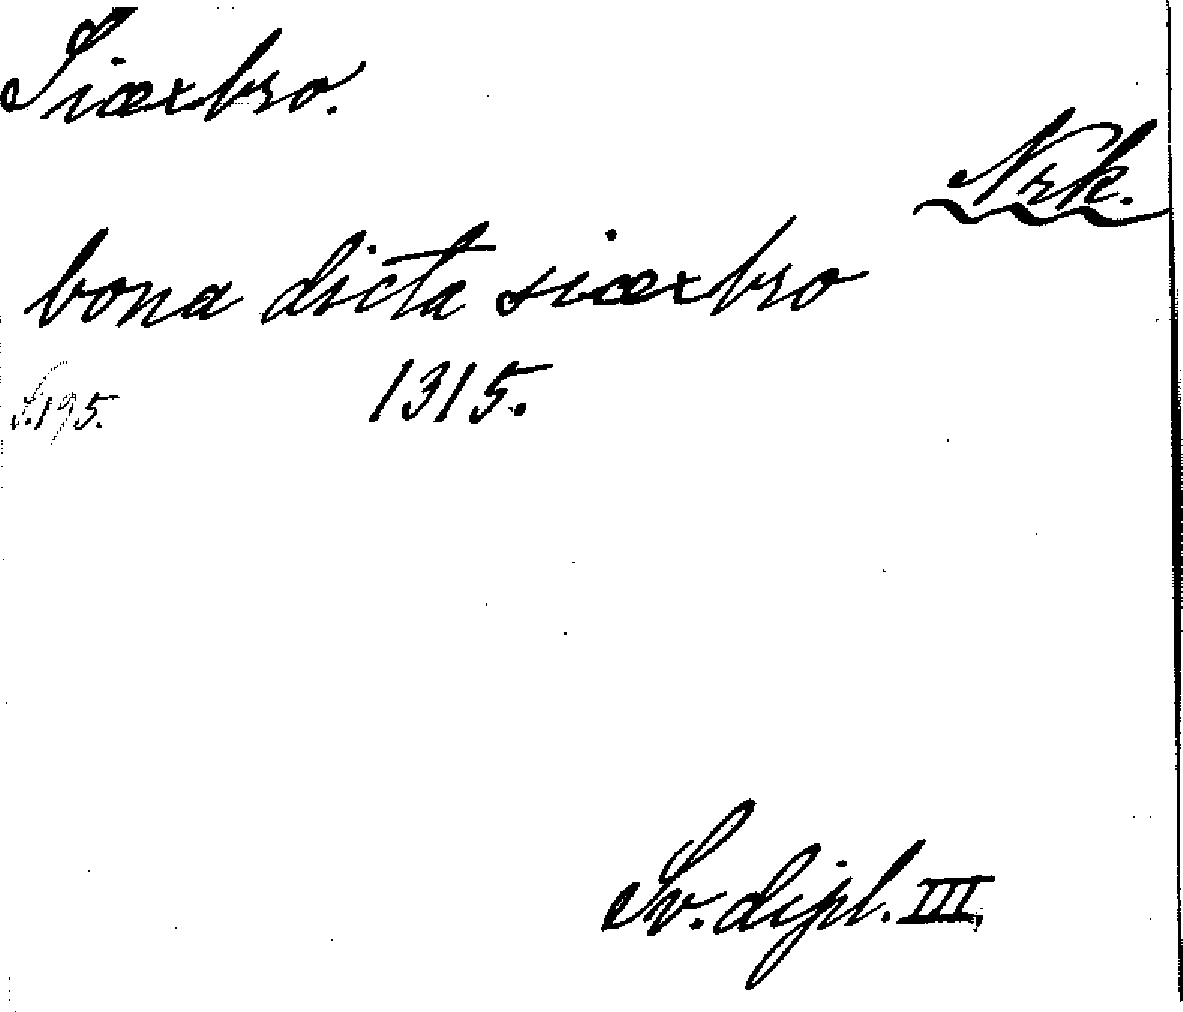 Siæxbro.
Nrk.
bona dicta siæxbro
S. 195. 1315.
Sv. dipl. III